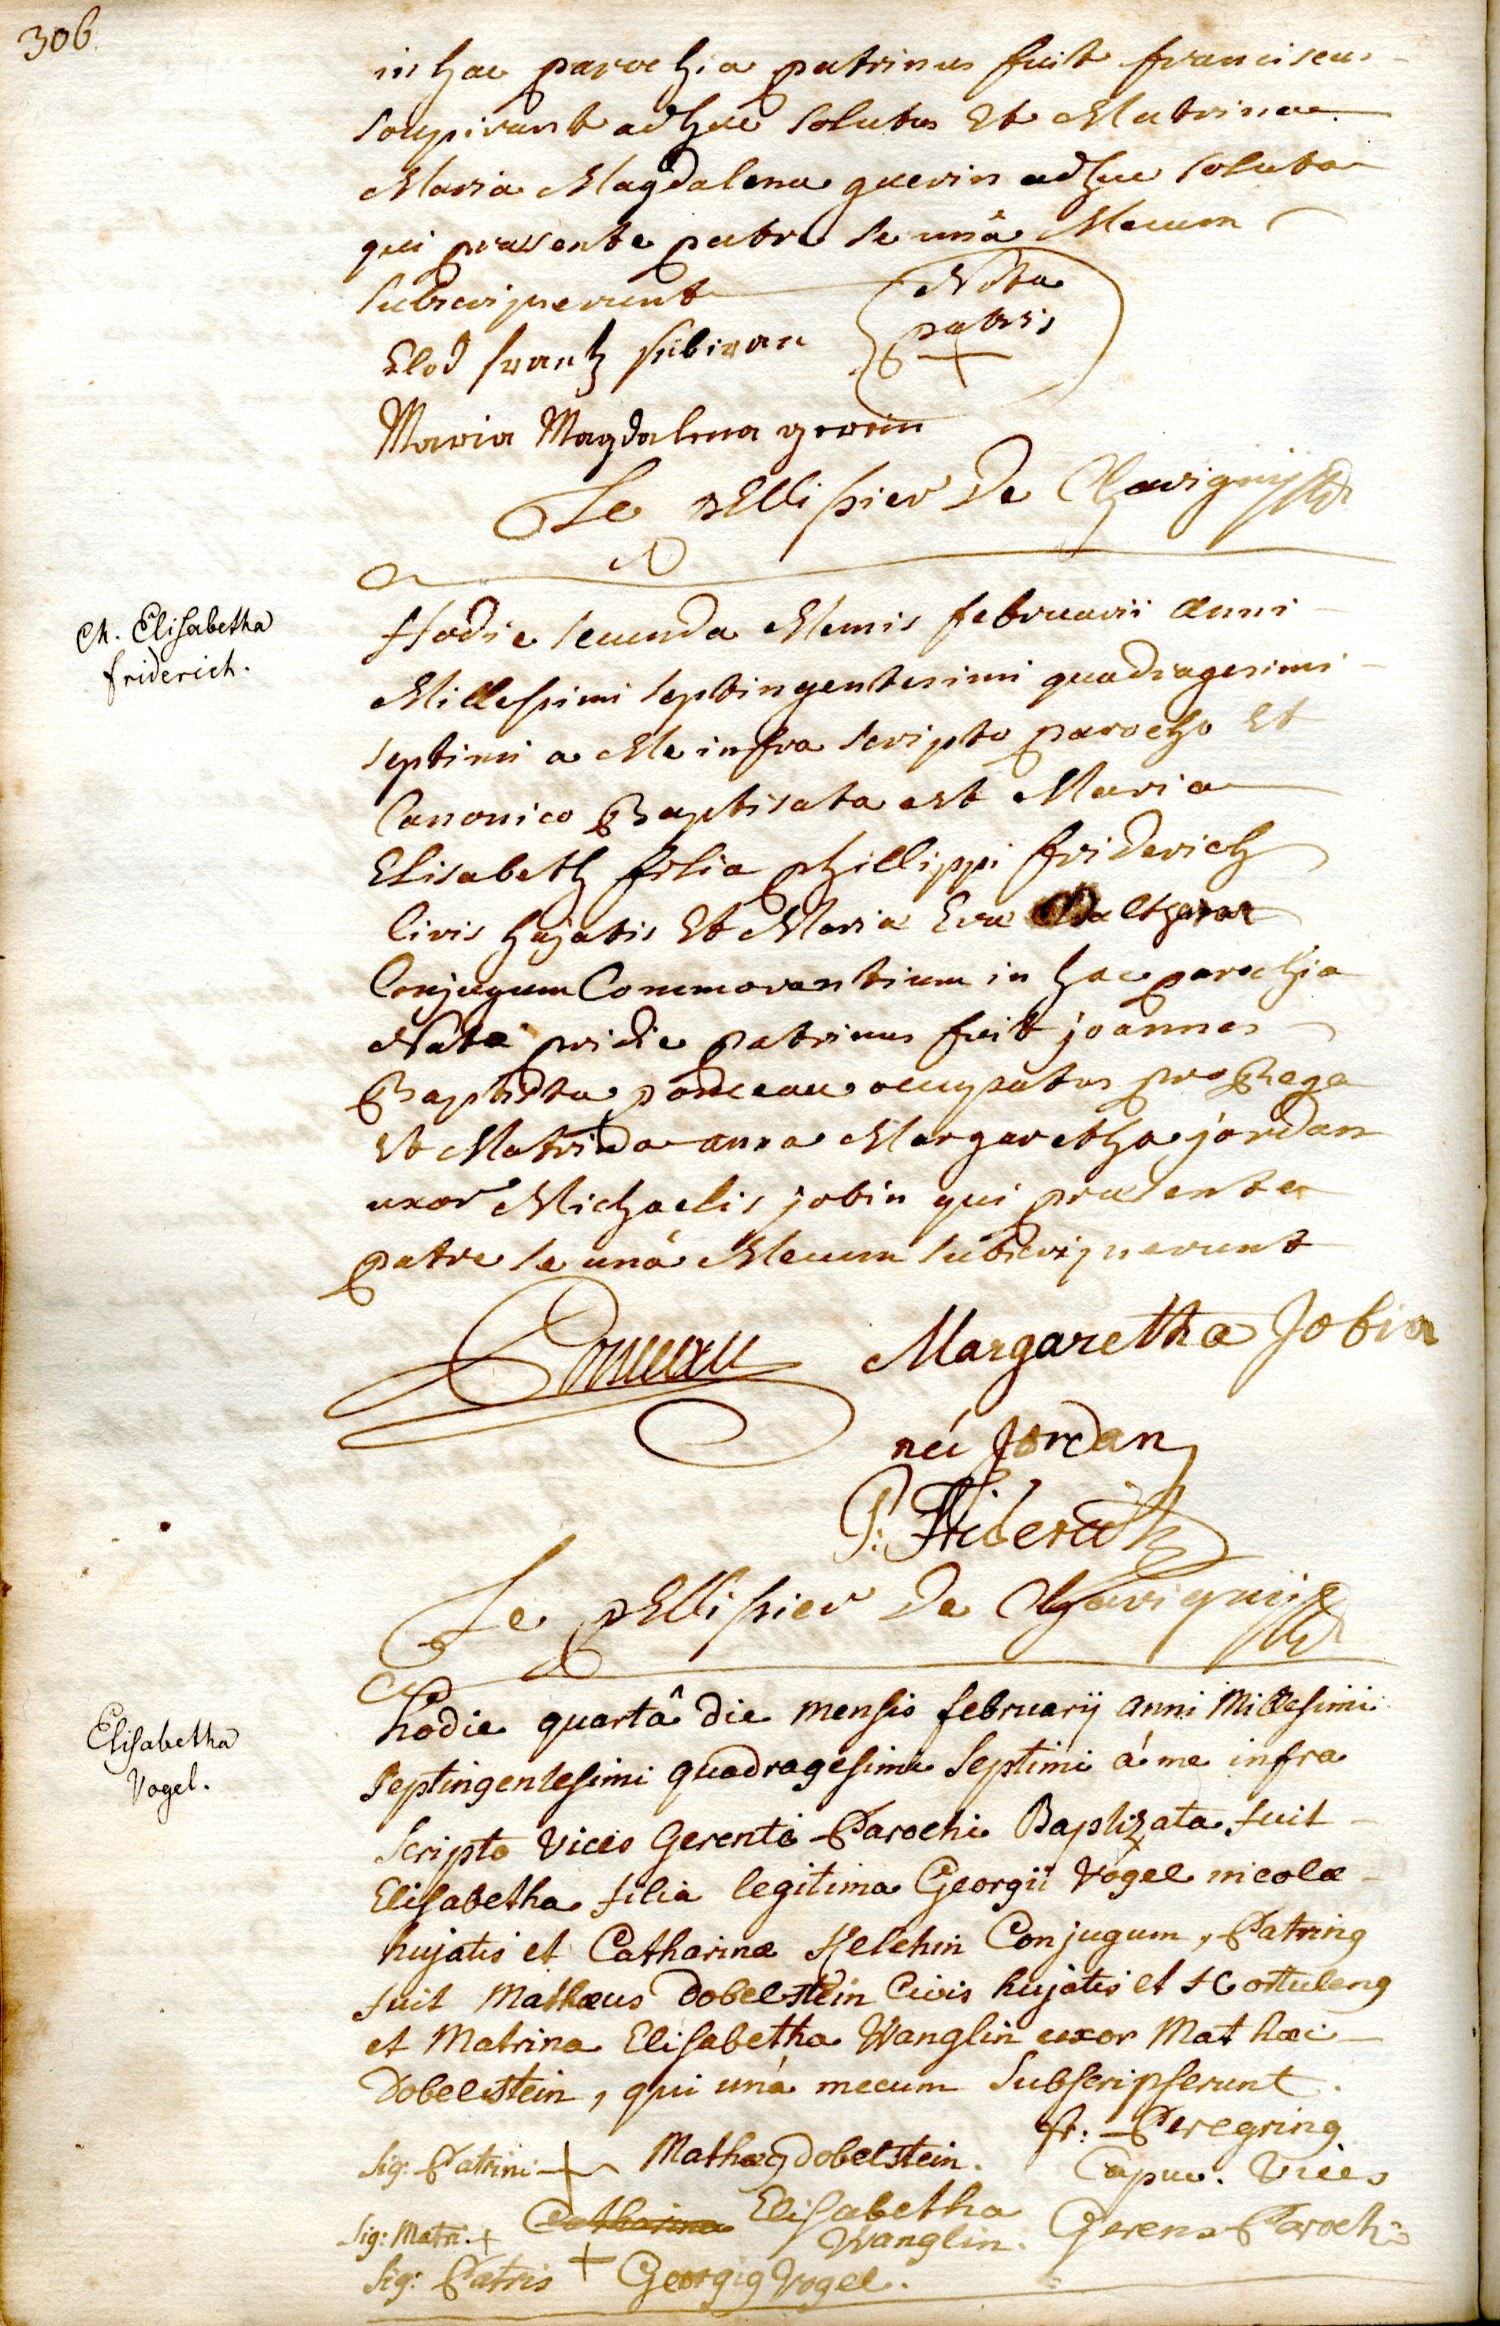 306
in hac parochia patrinus fuit franciscus
soupirant adhuc solutus Et Matrina
Maria Magdalena guerin adhuc soluta
qui præsente patre se unâ Mecum
subscripserunt
Nota
patris
+
frantz
Maria Magdalena gerrin
Le pEllissier De Chavigny
M. Elisabetha
friderich.
Hodie secunda Mensis februarii Anni
Millessimi septingentesimi quadragesimi
septimi a Me infra scripto parocho Et
Canonico Baptisata est Maria
Elisabeth filia phillippi friderich
Civis hujatis Et Mariæ Evæ
Conjugum Commorantium in hac parochia
Nata pridie patrinus fuit joannes
Baptista ponceau occupatus pro Rege
Et Matrina anna Margaretha jordan
uxor Michaelis jobin qui præsente
patre se unâ Mecum subscripserunt
Ponceau
Margaretha Jobin
néé Jordan
P: Friderich
Le pEllissier De Chavigny
Elisabetha
Vogel.
hodie quartâ die mensis februarij anni Millesimi
septingentesimi quadragesimi Septimi á me infra
scripto Vices Gerente Parochi Baptizata fuit
Elisabetha filia legitima Georgii Vogel incolæ
hujatis et Catharinæ Helchin Conjugum, Patring
fuit Mathæus Dobelstein Civis hujatis et Hortuleng
et Matrina Elisabetha Wanglin uxor Mathæi
Dobelstein, qui unâ mecum Subscripserunt.
fr: Peregring
Sig: Patrini + Mathæg Dobelstein.
Capuc. Vices
Sig: Matri. + Catharina Elisabetha
Wanglin.
Gerens Parochi
Sig: Patris + Georgig Vogel.